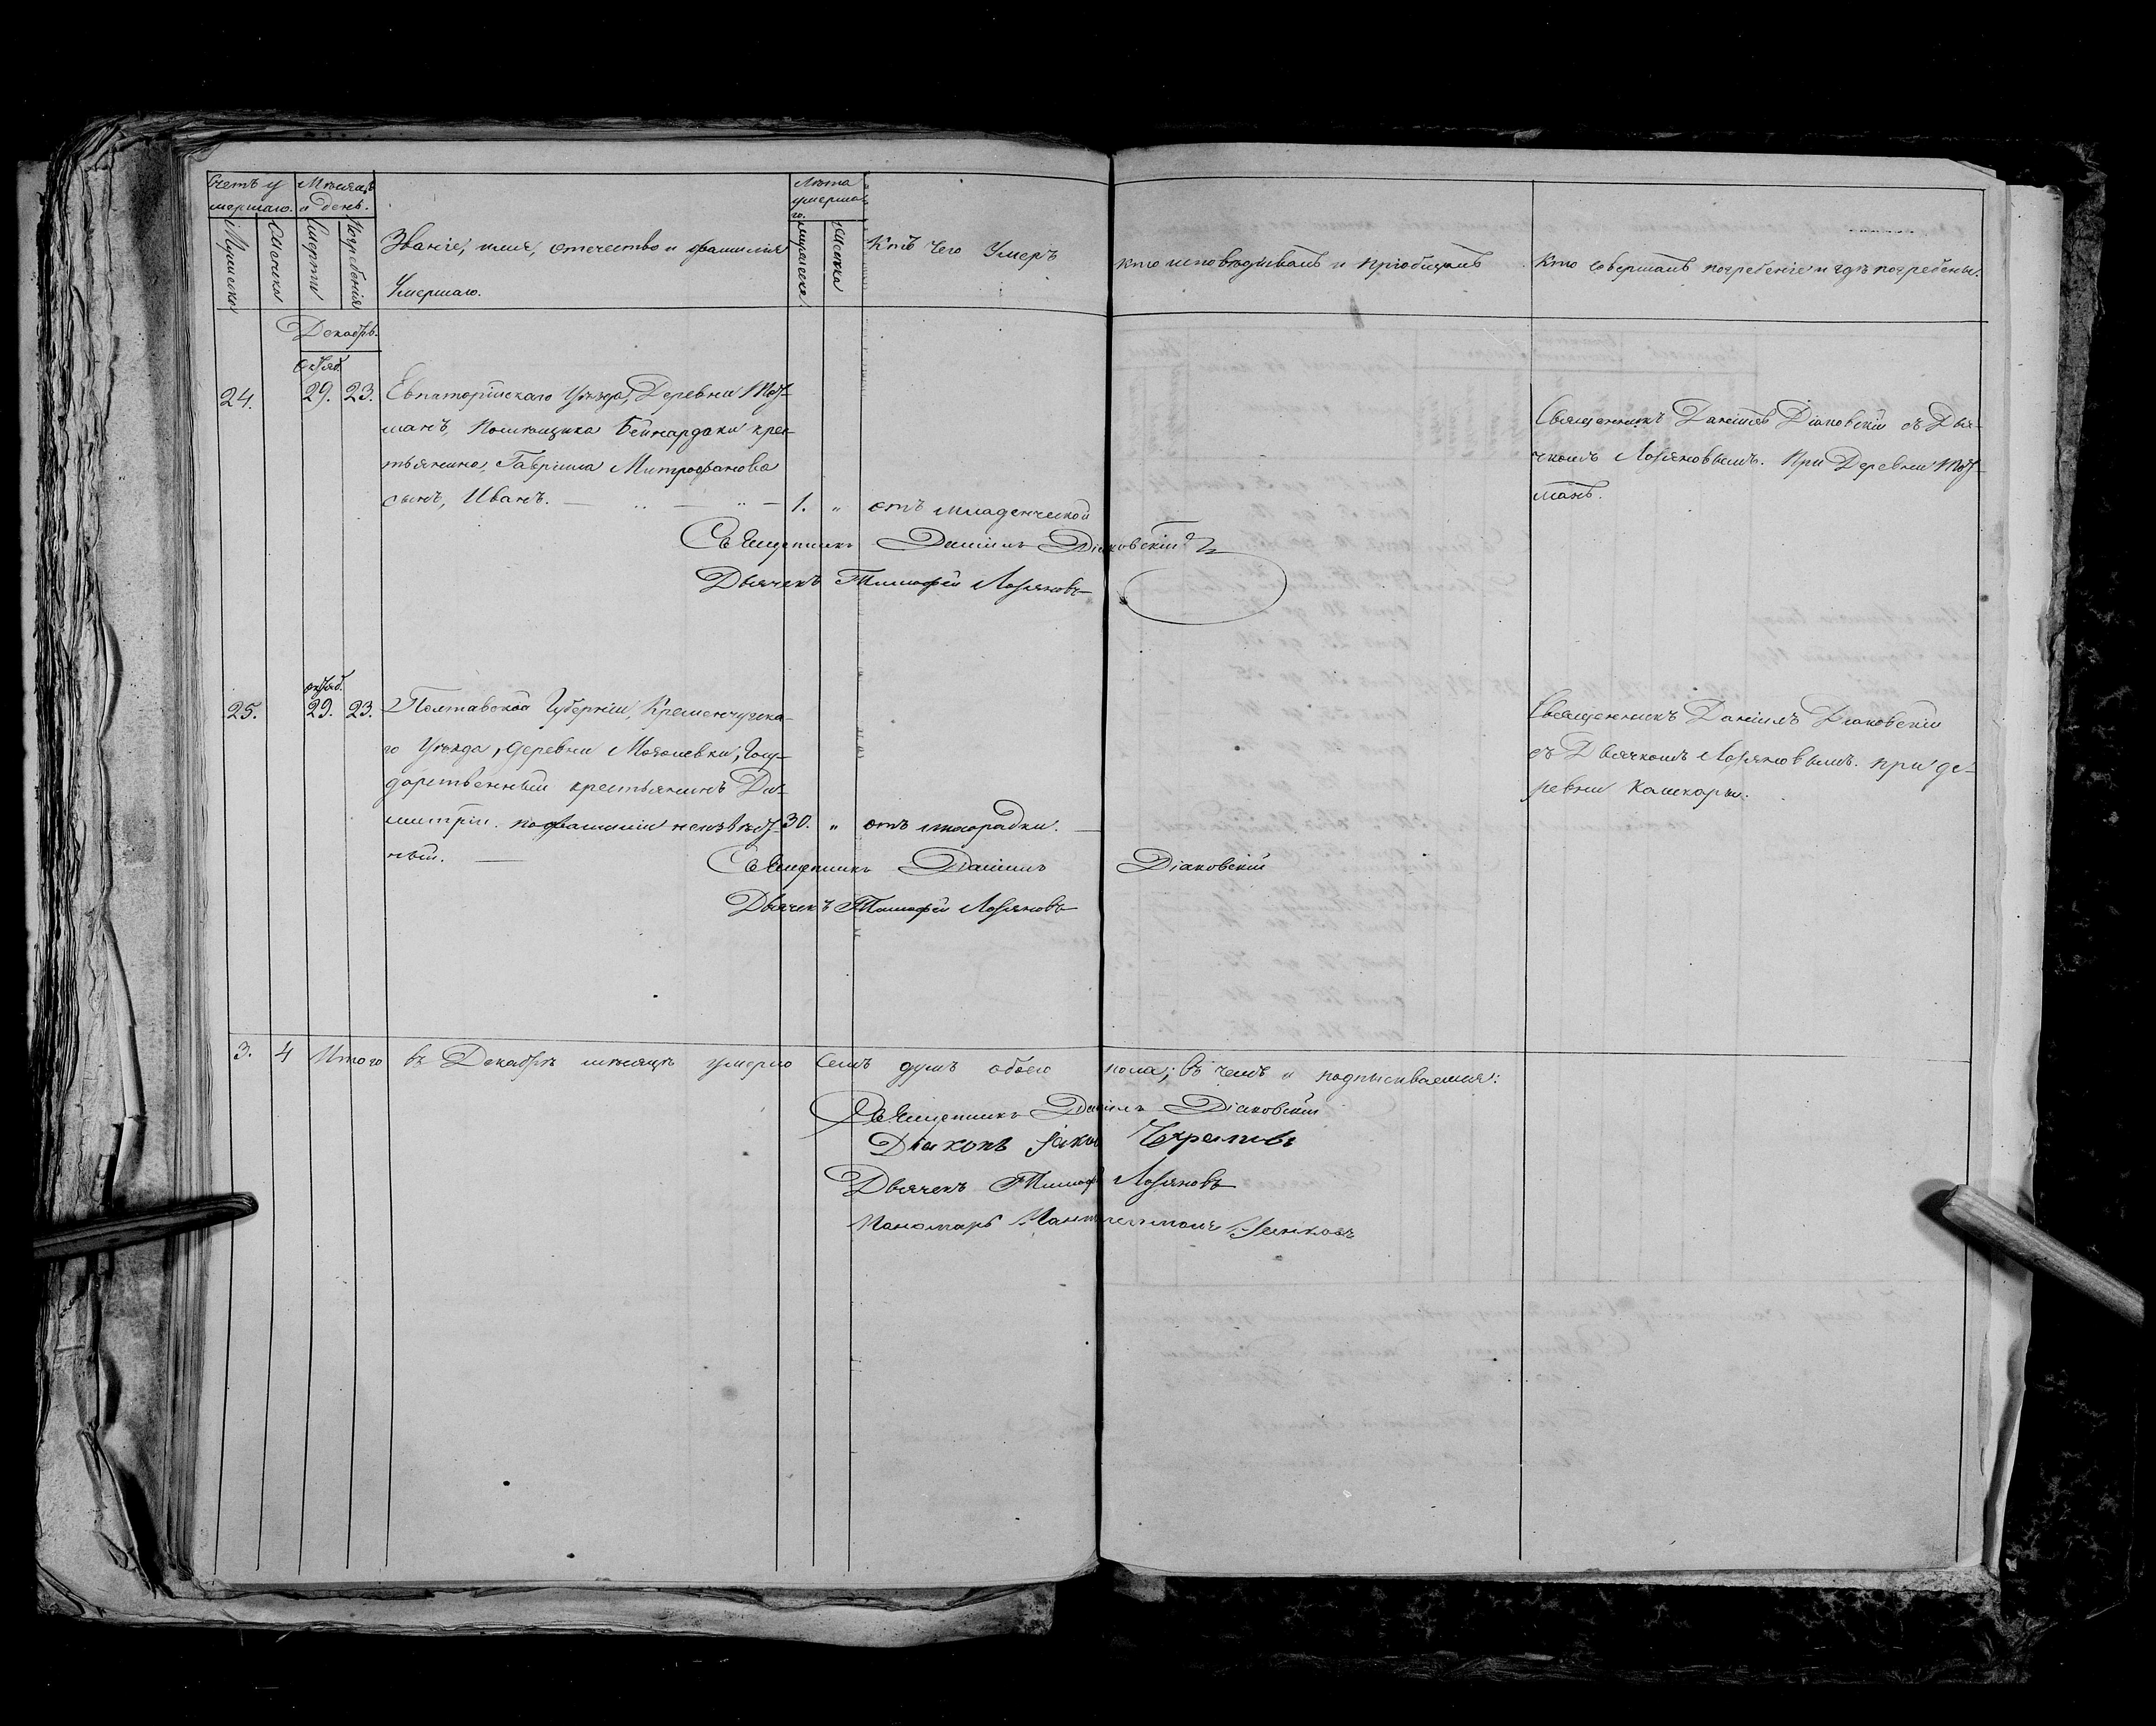 Счетъ у
мершаго.
Мѣсяцъ
и день.
Мужеска
Женска
Смерти
Погребенія
Званіе, имя, отечество и фамилія
Умершаго.
Лѣта
умерша
го.
мужеска
Женска
Отъ чего Умеръ
Кто исповѣдывалъ и пріобщалъ
Кто совершалъ погребеніе и гдѣ погребены.
Декабрь.
Октяб.
24. 29. 23. Евпаторійскаго Уѣзда, Деревни
манъ, Помѣщика Бенардаки крес
тьянина, Гавріила Митрофанова
сынъ, Иванъ. 1. „ отъ младенческой
Священникъ Даніилъ Діаковскій съ Дья-
чкомъ При Деревни
манъ.
Священникъ Даніилъ Діаковскій
Дьячекъ Тимофей
Октяб.
25. 29. 23. Полтавской Губерніи, Кременчугска-
го Уѣзда, деревни Госу-
дарственный крестьянинъ Ди-
митрій. по фамиліи неизвѣст- 30. „ отъ лихорадки.
ный.
Священникъ Даніилъ Діаковскій
съ Дьячкомъ при де-
ревни Кашкары.
Священникъ Даніилъ Діаковскій
Дьячекъ Тимофей
3. 4 Итого въ Декабрѣ мѣсяцѣ умерло семь душъ обоего пола; въ чемъ и подписываемся:
Священникъ Даніилъ Діаковскій
Діаконъ Іаковъ
Дьячекъ Тимофей
Пономарь Пантелеимонъ